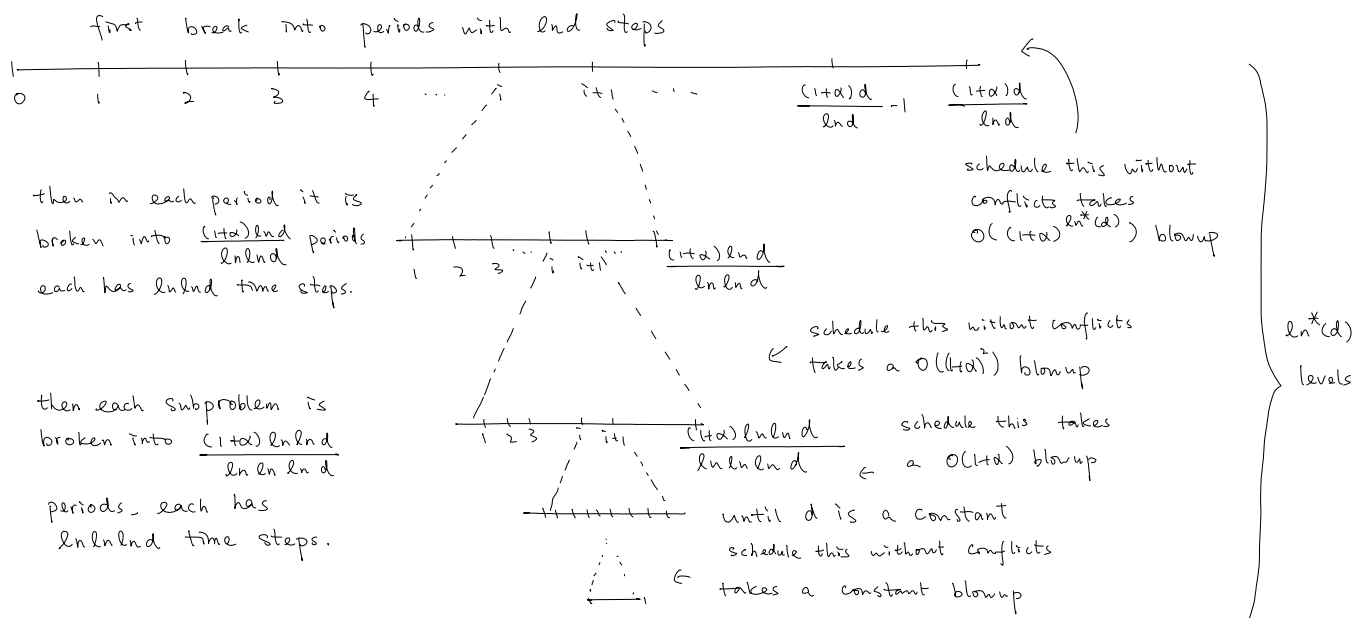 first break into periods with lnd steps
0 1 2 3 4 ... i i+1 ... (1+α)d/lnd -1 (1+α)d/lnd
schedule this without
conflicts takes
O((1+α)^ln*(d)) blowup
then in each period it is
broken into (1+α)lnd/lnlnd periods
each has lnlnd time steps.
1 2 3 ... i i+1 ... (1+α)ln d/ln ln d
schedule this without conflicts
takes a O((1+α)²) blowup
ln*(d)
levels
then each subproblem is
broken into (1+α)lnlnd/ln ln ln d
periods, each has
lnlnlnd time steps.
1 2 3 i i+1 (1+α)lnln d/lnlnln d
schedule this takes
a O(1+α) blowup
until d is a constant
schedule this without conflicts
takes a constant blowup